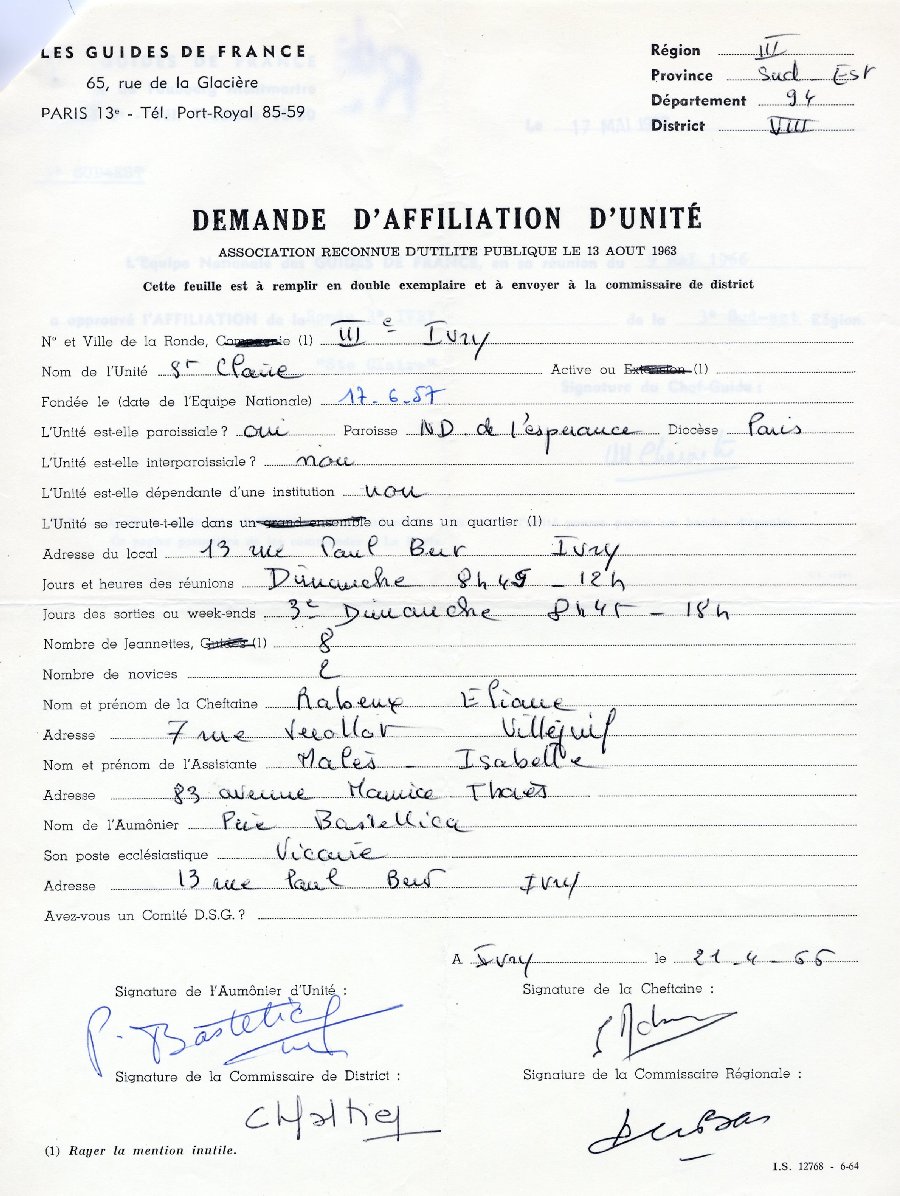 LES GUIDES DE FRANCE
65, rue de la Glacière
PARIS 13e - Tél. Port-Royal 85-59
Région III
Province Sud-Est
Département 94
District VIII
DEMANDE D'AFFILIATION D'UNITÉ
ASSOCIATION RECONNUE D'UTILITE PUBLIQUE LE 13 AOUT 1963
Cette feuille est à remplir en double exemplaire et à envoyer à la commissaire de district
N° et Ville de la Ronde, Compagnie (1) IIIe Ivry
Nom de l'Unité Ste Claire Active ou Extension (1)
Fondée le (date de l'Equipe Nationale) 17-6-57
L'Unité est-elle paroissiale ? oui Paroisse ND de l'esperance Diocèse Paris
L'Unité est-elle interparoissiale ? non
L'Unité est-elle dépendante d'une institution non
L'Unité se recrute-t-elle dans un grand ensemble ou dans un quartier (1)
Adresse du local 13 rue Paul Bert Ivry
Jours et heures des réunions Dimanche 8h45 - 12h
Jours des sorties ou week-ends 3e Dimanche 8h45 - 18h
Nombre de Jeannettes, Guides (1) 8
Nombre de novices 2
Nom et prénom de la Cheftaine Rabeux Eliane
Adresse 7 rue Verollot Villejuif
Nom et prénom de l'Assistante Malès - Isabelle
Adresse 83 avenue Maurice Thorès
Nom de l'Aumônier Père Bastellica
Son poste ecclésiastique Vicaire
Adresse 13 rue Paul Bert Ivry
Avez-vous un Comité D.S.G. ?
A Ivry le 21-4-66
Signature de l'Aumônier d'Unité : Signature de la Cheftaine :
P. Bastelica
Signature de la Commissaire de District : Signature de la Commissaire Régionale :
(1) Rayer la mention inutile.
I.S. 12768 - 6-64